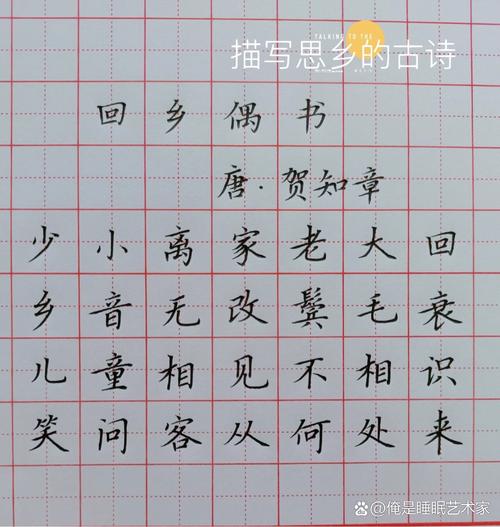 TALKING TO THE
描写思乡的古诗
回乡偶书
唐·贺知章
少小离家老大回
乡音无改鬓毛衰
儿童相见不相识
笑问客从何处来
@俺是睡眠艺术家